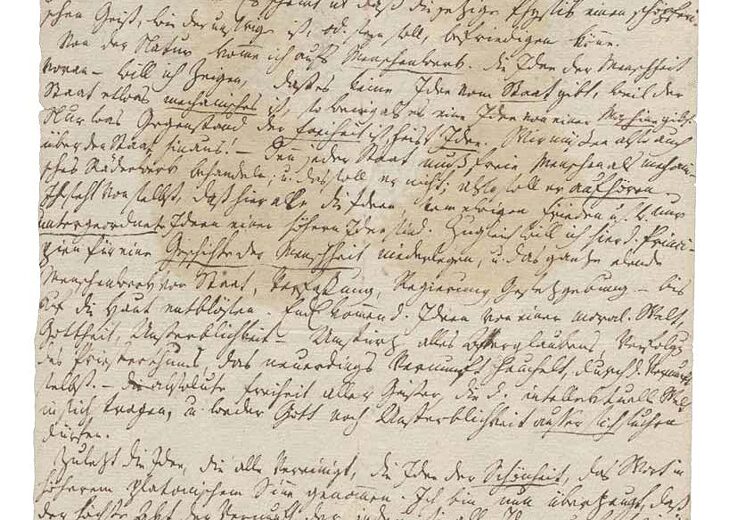 scheint nicht daß die jezige Physik einen schöpferi-
schen Geist, wie der unsrige ist, od. seyn soll, befriedigen könne.
Von der Natur komme ich aufs Menschenwerk. die Idee der Menschheit
voran – will ich zeigen, daß es keine Idee vom Staat gibt, weil der
Staat etwas mechanisches ist, so wenig als es eine Idee von einer Maschine gibt.
Nur was Gegenstand der Freiheit ist, heist Idee. Wir müßen also auch
über den Staat hinaus! – Denn jeder Staat muß freie Menschen als mechani-
sches Räderwerk behandeln; u. das soll er nicht; also soll er aufhören.
Ihr seht von selbst, daß hier alle die Ideen, vom ewigen Frieden u.s.w. nur
untergeordnete Ideen einer höhern Idee sind. Zugleich will ich hier d. Princi-
pien für eine Geschichte der Menschheit niederlegen, u. das ganze elende
Menschenwerk von Staat, Verfaßung, Regierung, Gesezgebung – bis
auf die Haut entblösen. Endlich kommen d. Ideen von einer moral. Welt,
Gottheit, Unsterblichkeit – Umsturz alles Afterglaubens, Verfolgung
des Priesterthums, das neuerdings Vernunft heuchelt, durch d. Vernunft
selbst. – absolute Freiheit aller Geister, die d. intellektuelle Welt
in sich tragen, u. weder Gott noch Unsterblichkeit ausser sich suchen
dürfen.
Zulezt die Idee, die alle vereinigt, die Idee der Schönheit, das Wort in
höherem platonischem Sinne genommen. Ich bin nun überzeugt, daß
der höchste Akt der Vernunft, der, in dem sie alle Ideen